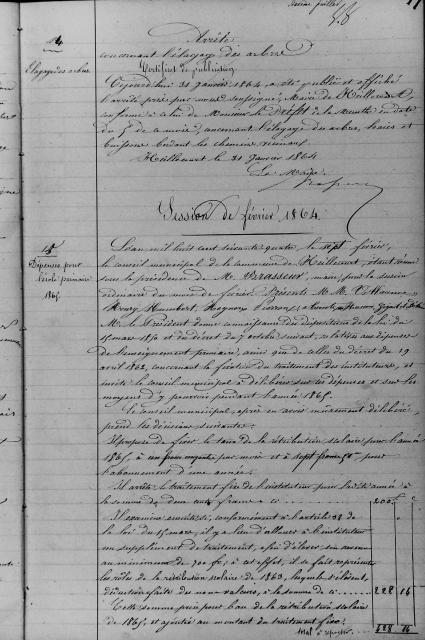 Arrêté
14
concernant l'élagage des arbres
Elagage des arbres
Certificat de publication
Aujourd'hui 31 janvier 1864 a été publié et affiché
l'arrêté pris par nous soussigné, Maire de
conforme à celui de Monsieur le Préfet de la Meurthe en date
du 5 de ce mois, concernant l'élagage des arbres, haies et
buissons bordant les chemins vicinaux
Haillecourt le 31 Janvier 1864
Le Maire
Session de février 1864.
15
Dépenses pour
l'école primaire
1865.
L'an mil huit cent soixante quatre, le sept février,
le conseil municipal de la commune de Haillecourt, étant réuni
sous la présidence de M. Brasseur, maire, pour la session
ordinaire du mois de février. Présents M.M.
Henry, Humbert,
M. le Président donne connaissance des dispositions de la loi du
15 mars 1850 et du décret du 7 octobre suivant, relatives aux dépenses
de l'enseignement primaire, ainsi que de celles du décret du 19
avril 1862, concernant la fixation du traitement des instituteurs, et
invite le conseil municipal à délibérer sur les dépenses et sur les
moyens d'y pourvoir pendant l'année 1865.
Le conseil municipal, après en avoir mûrement délibéré,
prend les décisions suivantes:
Il propose de fixer le taux de la rétribution scolaire pour l'année
1865, à un franc par mois et à sept francs pour
l'abonnement d'une année.
Il arrête le traitement fixe de l'instituteur pour la dite année à
la somme de deux cents francs ci 200
Il examine ensuite si, conformément à l'article 38 de
la loi du 15 mars, il y a lieu d'allouer à l'instituteur
un supplément de traitement, afin d'élever son revenu
au minimum de 700 fr; à cet effet, il se fait représenter
les rôles de la rétribution scolaire de 1863, lesquels s'élèvent,
déduction faite des non valeurs, à la somme de ci 228 16
Cette somme prise pour base de la rétribution scolaire
de 1865, et ajoutée au montant du traitement fixe
total à reporter 428 16